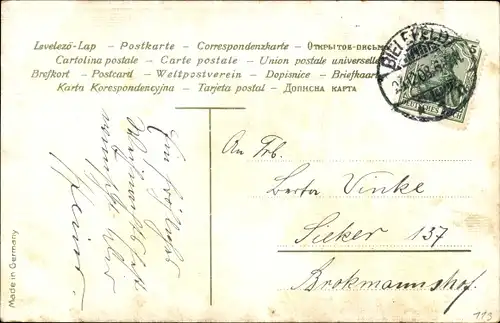 Levelező-Lap – Postkarte – Correspondenzkarte – Открытое письмо
Cartolina postale – Carte postale – Union postale universelle
Brefkort – Postcard – Weltpostverein – Dopisnice – Briefkaart
Karta Korespondencyjna – Tarjeta postal – Дописна карта
BIELEFELD
DEUTSCHES REICH
An Frl.
Berta Vinke
Sieker 137
Brokmannshof.
Ein fröhliches
Weihnachtsfest
wünscht Dir
Heinr.
Made in Germany
113